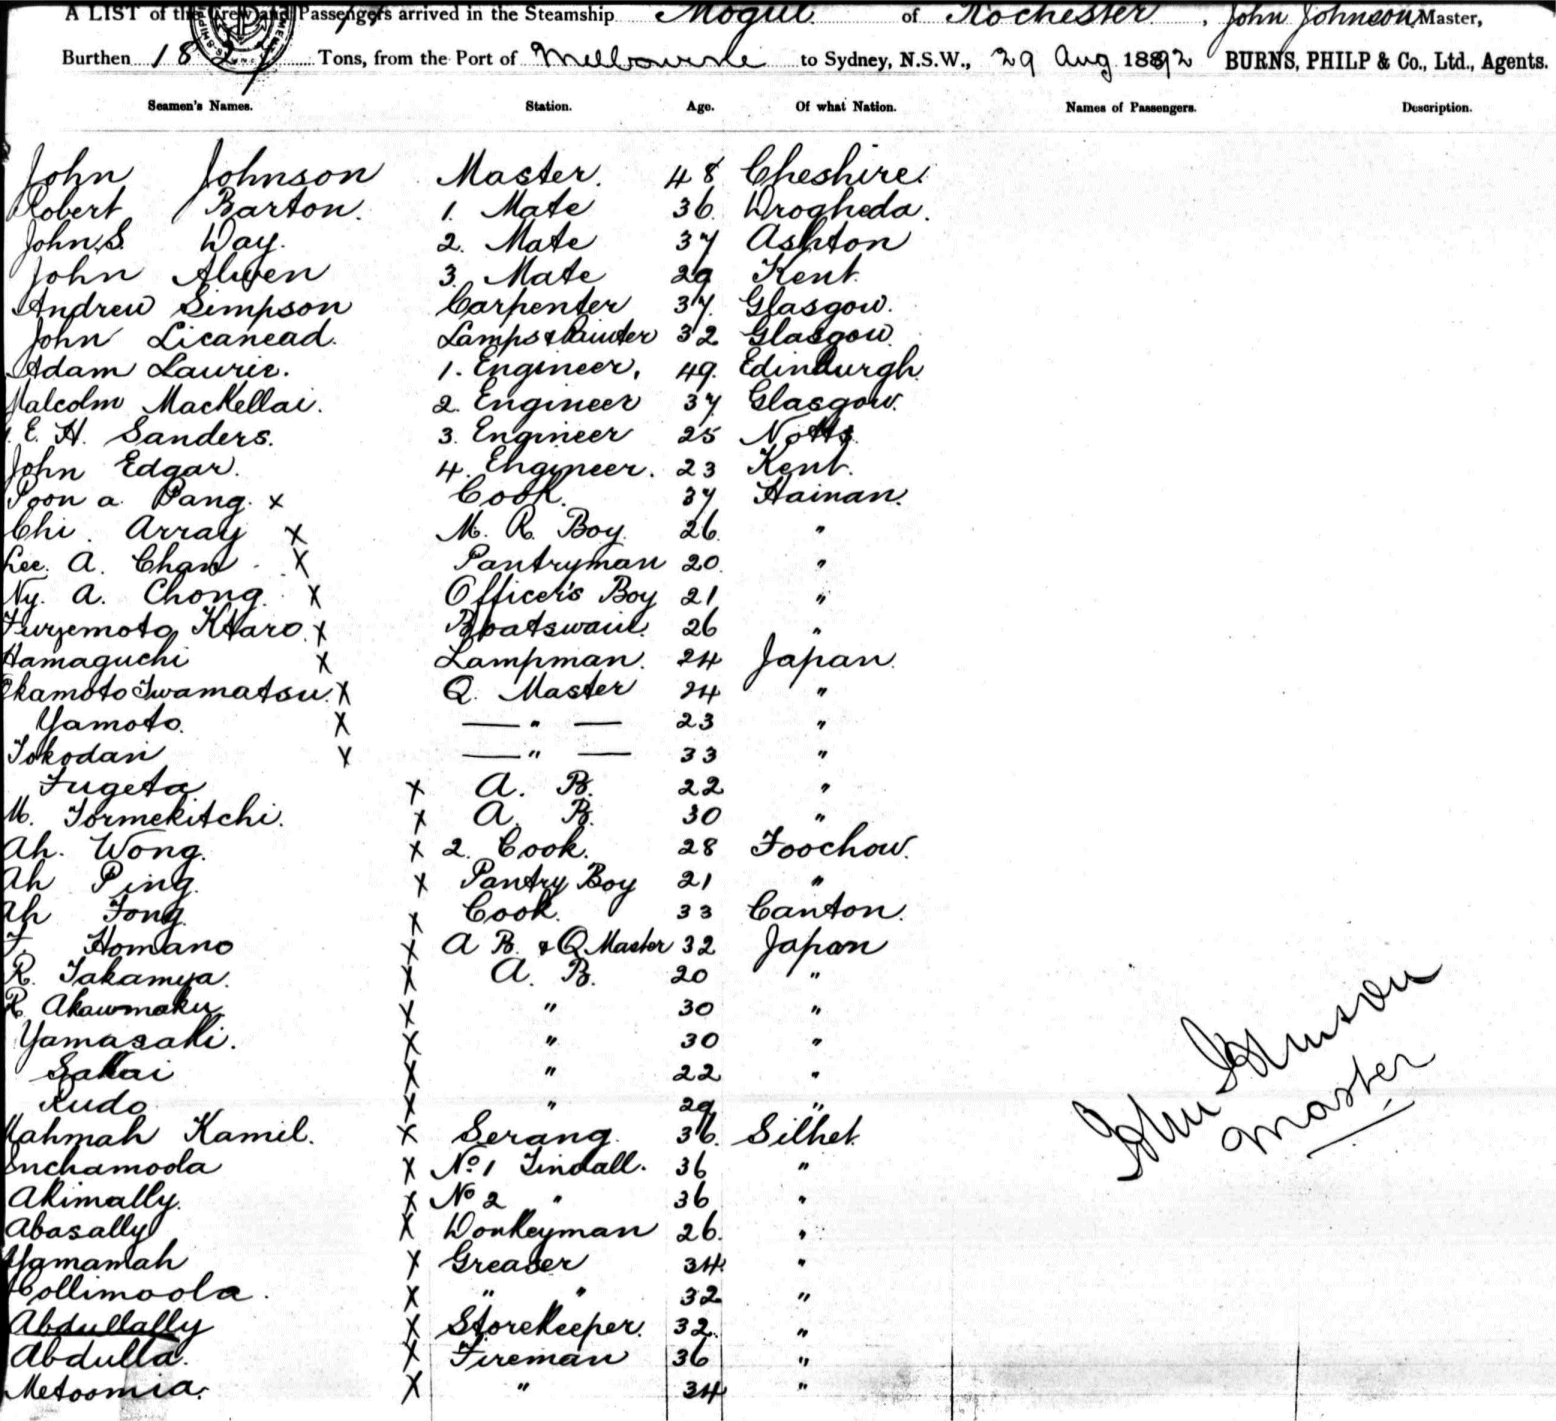 A LIST of the Crew and Passengers arrived in the Steamship Mogul of Rochester, John Johnson Master,
Burthen 1827 Tons, from the Port of Melbourne to Sydney, N.S.W., 29 Aug 1892 BURNS, PHILP & Co., Ltd., Agents.
Seamen's Names. Station. Age. Of what Nation. Names of Passengers. Description.
John Johnson Master. 48 Cheshire.
Robert Barton. 1. Mate 36. Drogheda.
John S. Way. 2. Mate 37 Ashton
John Alwen 3. Mate 29 Kent.
Andrew Simpson Carpenter 37. Glasgow.
John Licanead. Lamps & Painter 32 Glasgow.
Adam Laurie. 1. Engineer. 49. Edinburgh.
Malcolm MacKellai. 2. Engineer 37 Glasgow.
E. H. Sanders. 3. Engineer 25 Notts.
John Edgar. 4. Engineer. 23 Kent.
Poon a Pang. x Cook. 37 Hainan.
Chi. Array x M. R. Boy. 26. "
Lee. A. Chan x Pantryman 20. "
Ny. A. Chong. x Officer's Boy 21 "
Ktaro. x Boatswain. 26 "
Hamaguchi x Lampman. 24 Japan.
Okamoto Iwamatsu. x Q. Master 24 "
Yamoto. x — " — 23 "
Tokodan x — " — 33 "
Fugeta x A. B. 22 "
M. Tormekitchi. x A. B. 30 "
Ah. Wong. x 2. Cook. 28 Foochow.
Ah Ping. x Pantry Boy 21 "
Ah Fong. x Cook. 33 Canton.
Homano x A B. & Q. Master 32 Japan
R. Takamya. x A. B. 20 "
R. Akawmaku x " 30 "
Yamasaki. x " 30 "
Sakai x " 22 "
Kudo x " 29 "
Kamil. x Serang. 36. Silhet.
Enchamoola x No 1 Tindall. 36 "
Akimally. x No 2 " 36 "
Abasally x Donkeyman 26. "
x Greaser 34 "
Collimoola. x " " 32 "
Abdullally x Storekeeper. 32. "
Abdulla. x Fireman 36 "
Metoomia. x " 34 "
John Johnson
Master